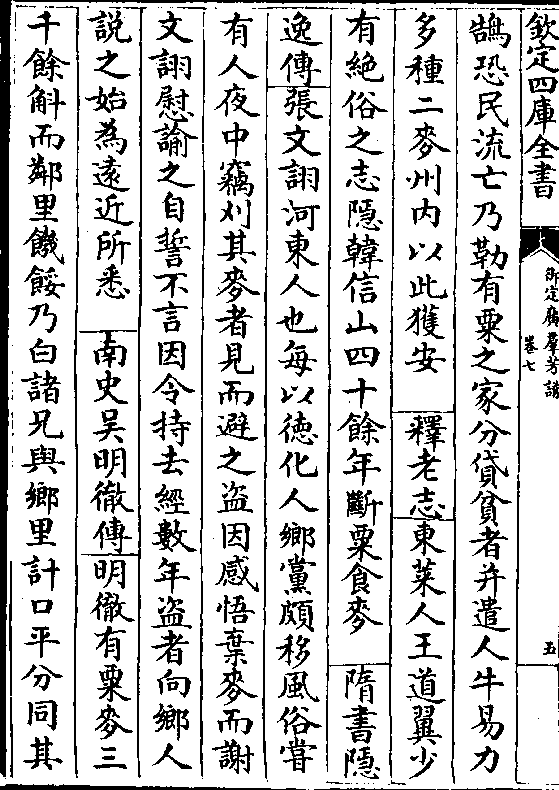 欽定四庫全書
御定廣羣芳譜
卷七
五
鵠恐民流亡乃勒有粟之家分貸貧者并遣人牛易力
多種二麥州内以此獲安 釋老志東萊人王道翼少
有絶俗之志隱韓信山四十餘年斷粟食麥 隋書隱
逸傳張文詡河東人也每以徳化人鄉黨頗移風俗甞
有人夜中竊刈其麥者見而避之盗因感悟棄麥而謝
文詡慰諭之自誓不言因令持去經數年盗者向鄉人
説之始為遠近所悉 南史吴明徹傳明徹有粟麥三
千餘斛而鄰里饑餒乃白諸兄與鄉里計口平分同其